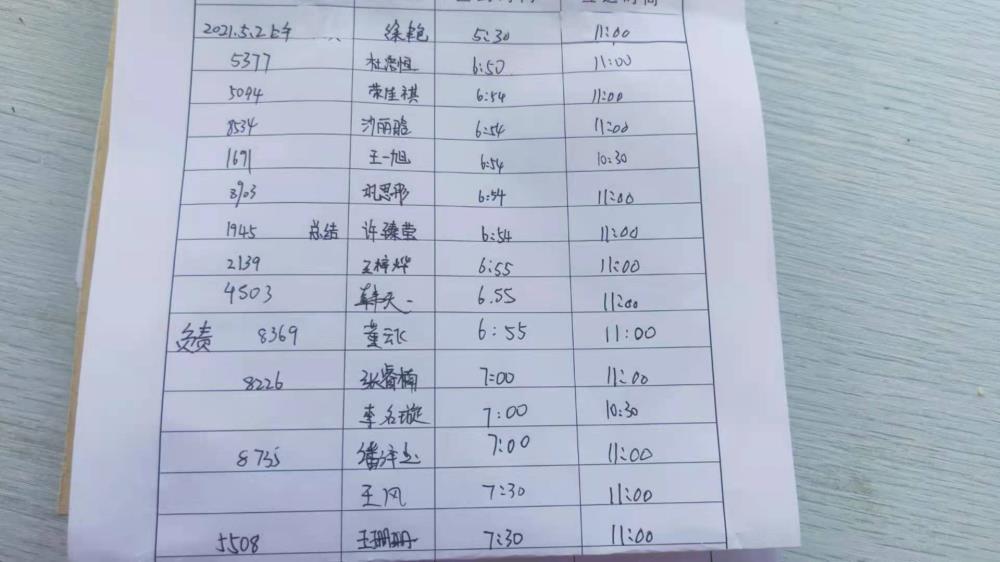 2021.5.2上午 徐艳 5:30 11:00
5377 杜浩恒 6:50 11:00
5094 荣佳祺 6:54 11:00
8534 沙丽晗 6:54 11:00
1691 王一旭 6:54 10:30
8903 巩思彤 6:54 11:00
1945 总结 许臻莹 6:54 11:00
2139 王梓烨 6:55 11:00
4503 韩天一 6.55 11:00
负责 8369 董云飞 6:55 11:00
8226 张睿楠 7:00 11:00
李名璇 7:00 10:30
8735 7:00 11:00
王风 7:30 11:00
5508 王珊珊 7:30 11:00